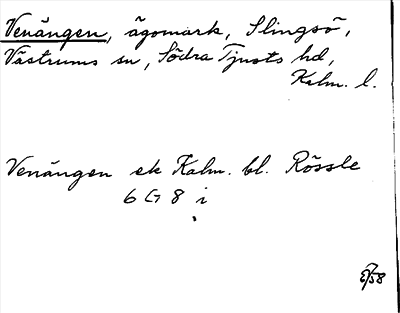 Venängen, ägomark, Slingsö,
Västrums sn, Södra Tjusts hd,
Kalm. l.
Venängen ek Kalm. bl. Rössle
6 G 8 i